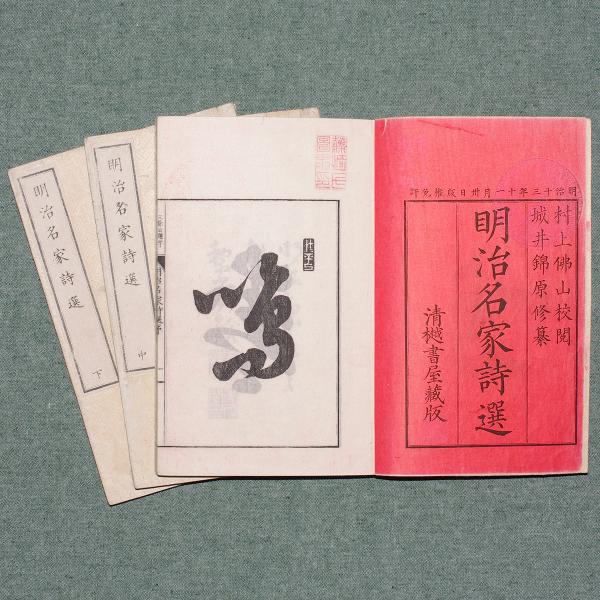 明治十三年十一月卅日版権免許
村上佛山校閲
城井錦原修纂
明治名家詩選
清樾書屋藏版
鳴
明治名家詩選
中
明治名家詩選
下